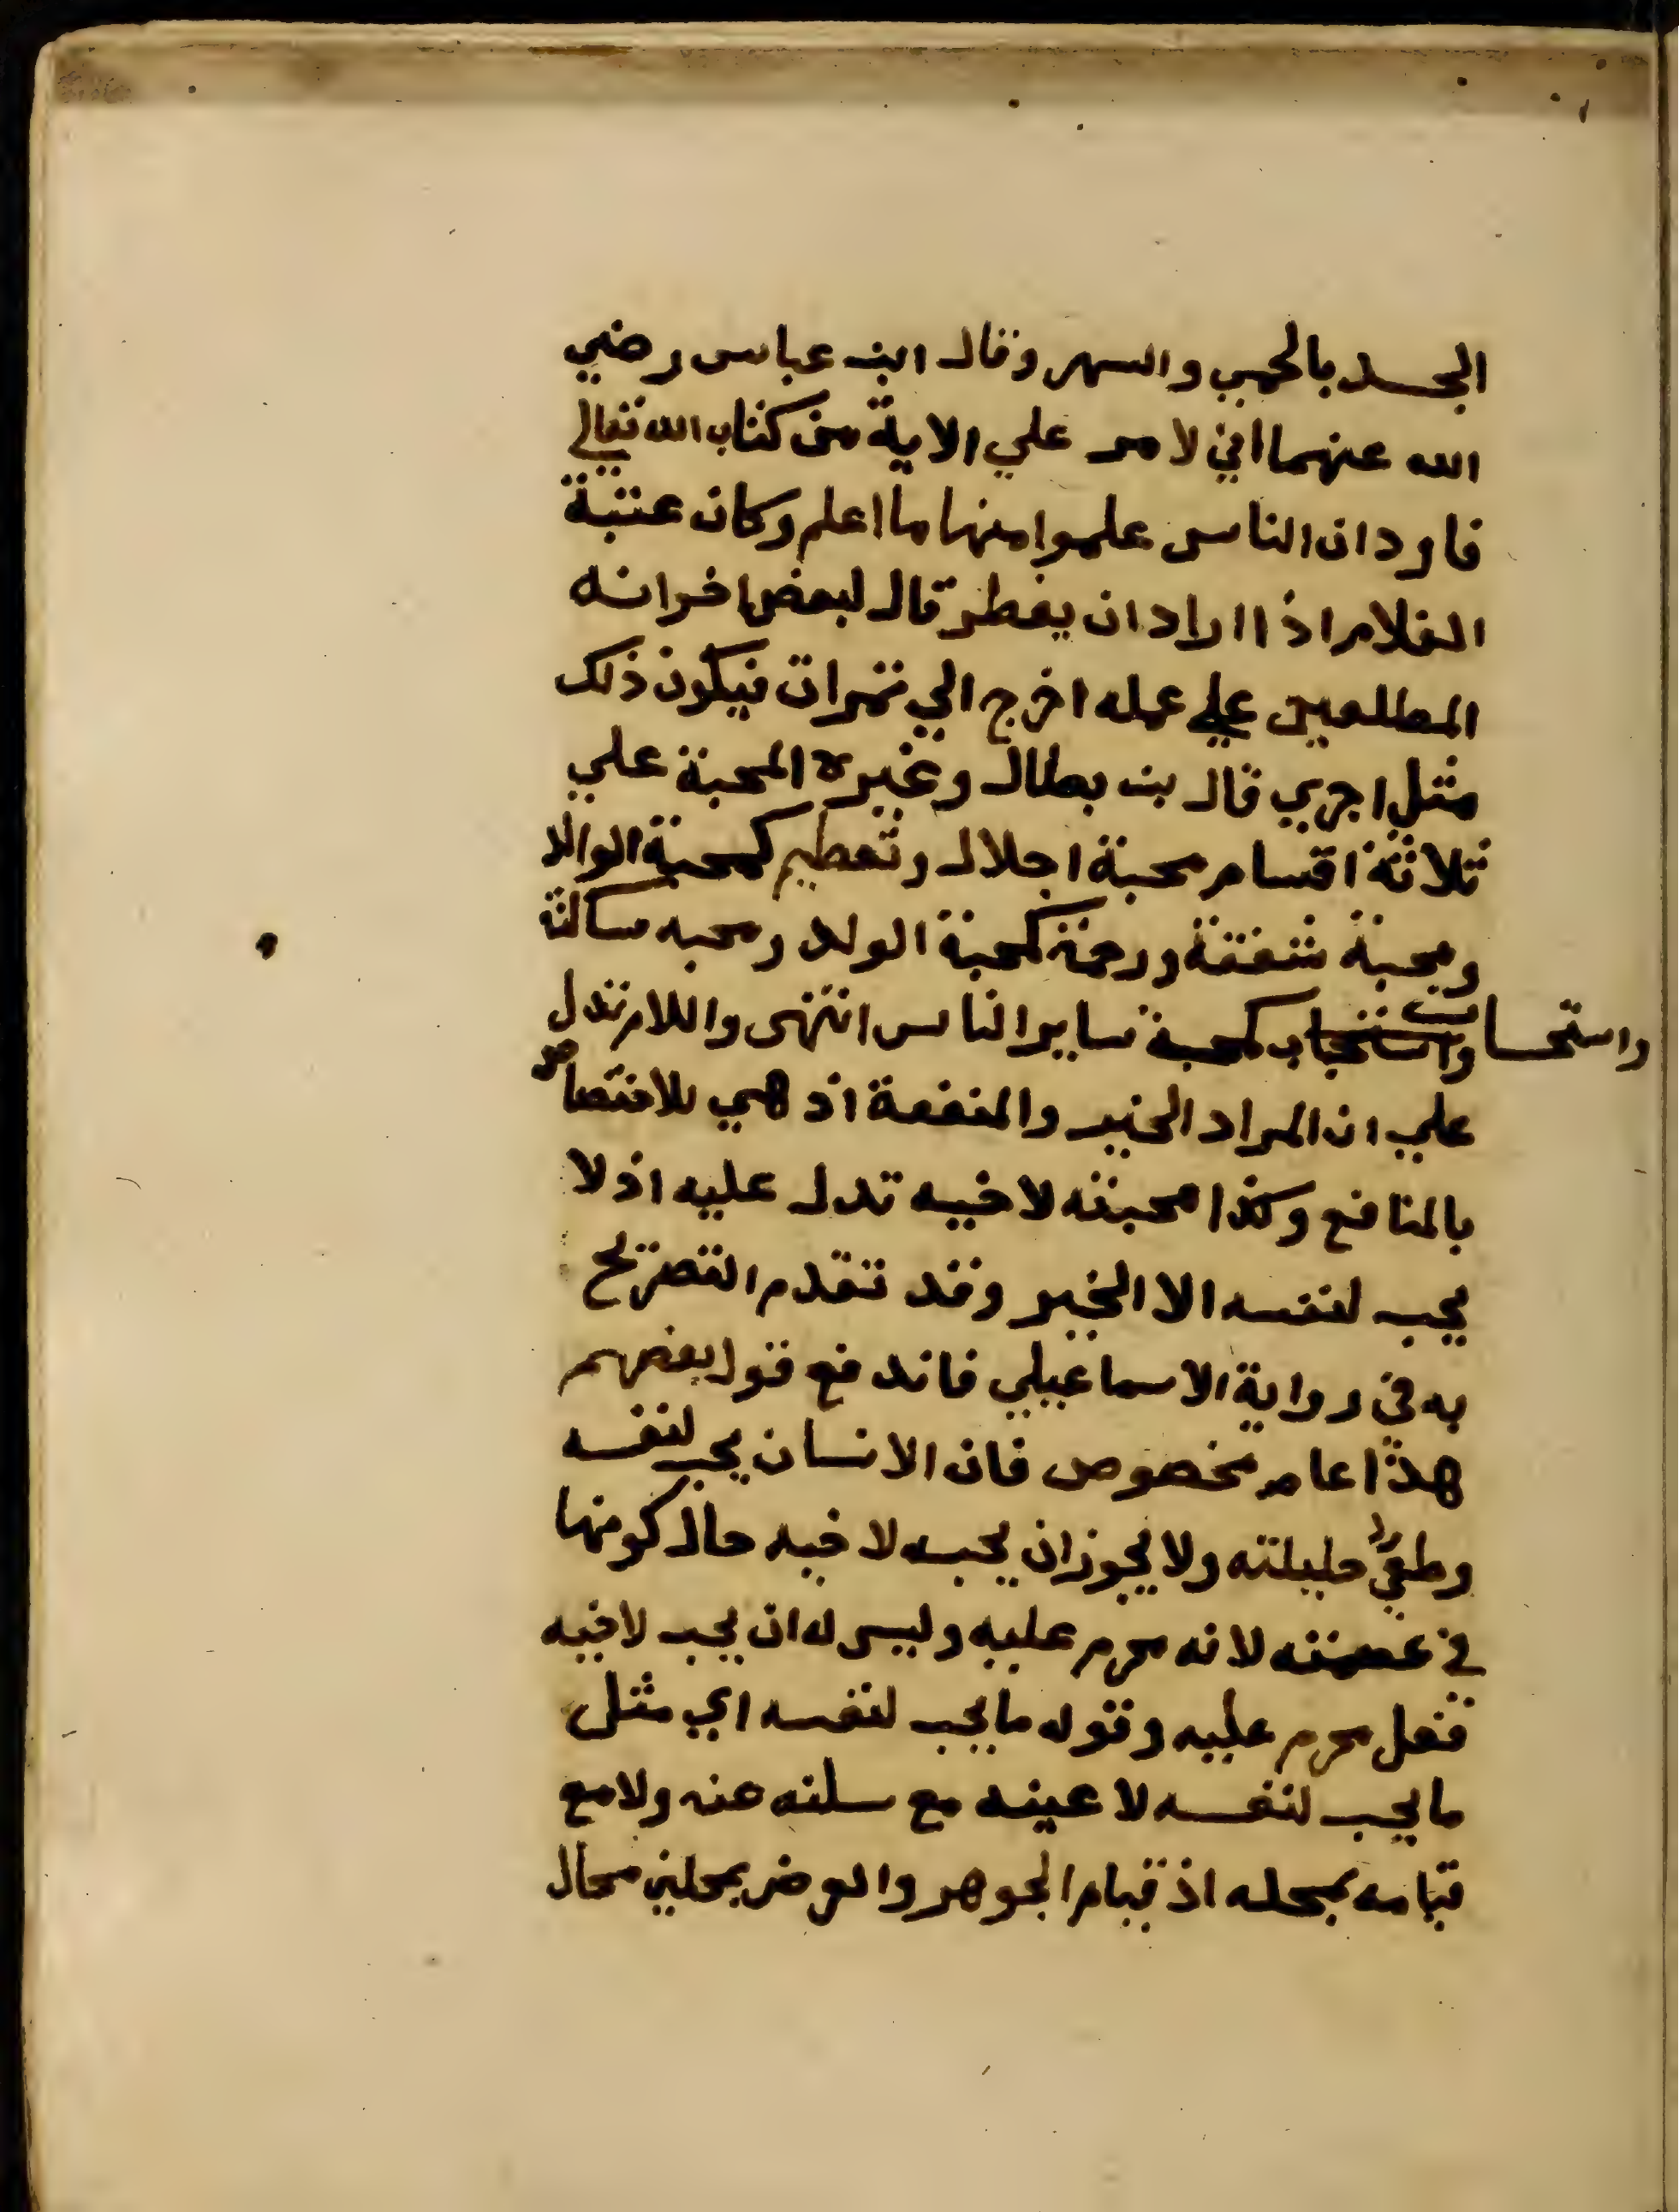 الجسد بالحمى والسهر وقال ابن عباس رضي
الله عنهما اني لامر علي الاية من كتاب الله تعالي
فاود ان الناس علموا منها ما اعلم وكان عتبة
الغلام اذا اراد ان يفطر قال لبعض اخوانه
المطلعين علي عمله اخرج الي تمرات فيكون ذلك
مثل اجري قال بن بطال وغيره المحبة علي
ثلاثة اقسام محبة اجلال وتعظيم كمحبة الوالد
ومحبة شفقة ورحمة كمحبة الولد ومحبه مساكلة
واستحسان كمحبة ساير الناس انتهى واللام تدل
علي ان المراد الخير والمنفعة اذ هي للاختصاص
بالمنافع وكذا محبته لاخيه تدل عليه اذ لا
يحب لنفسه الا الخير وقد تقدم التصريح
به في رواية الاسماعيلي فاندفع قول بعضهم
هذا عام مخصوص فان الانسان يحب لنفسه
وطئ حليلته ولا يجوز ان يحبه لاخيه حال كونها
في عصمته لانه محرم عليه وليس له ان يحب لاخيه
فعل محرم عليه وقوله ما يحب لنفسه اي مثل
ما يحب لنفسه لا عينه مع سلبه عنه ولا مع
قيامه بمحله اذ قيام الجوهر والعرض بمحلين محال